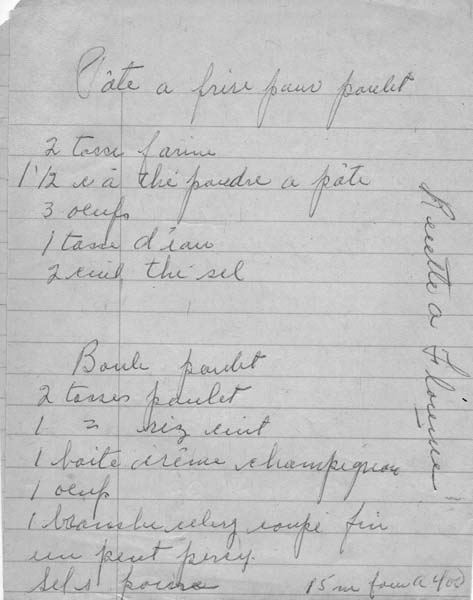 Pâte a frire pour poulet
2 tasse farine
1 1/2 c à thé poudre a pâte
3 oeufs
1 tasse d'eau
2 cuil thé sel
Recette a Florence
Boule poulet
2 tasses poulet
1 " riz cuit
1 boite crême champignon
1 oeuf
1 branche celery coupé fin
un peut percy.
Sel & poivre
15 m four a 400